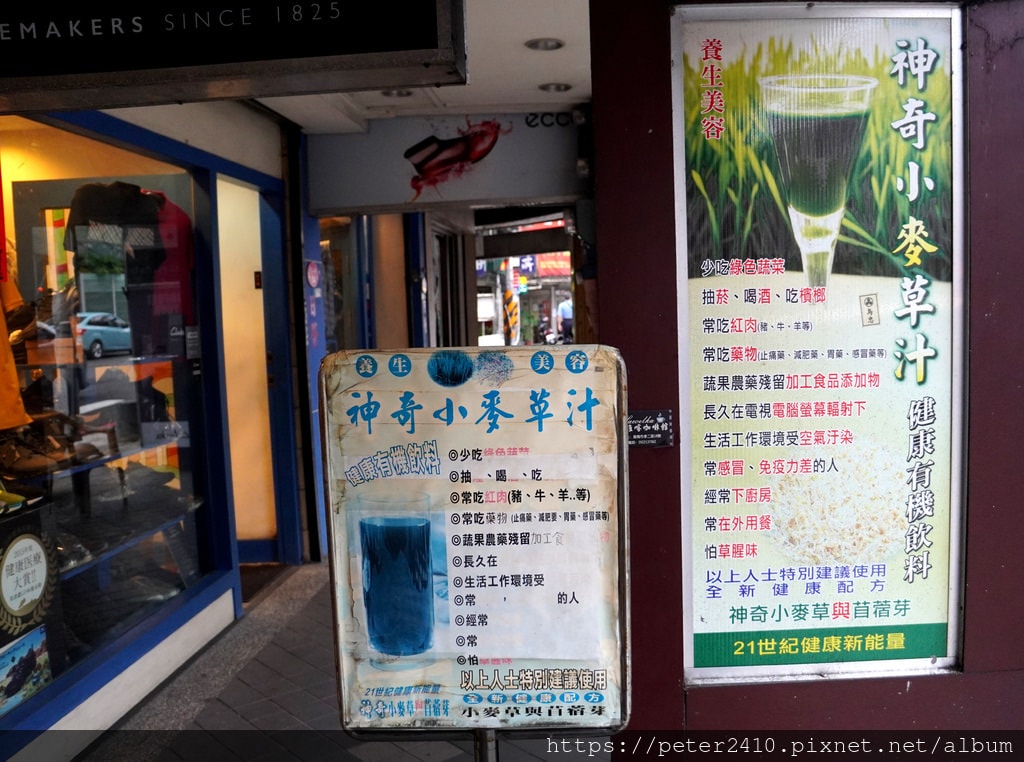 EMAKERS SINCE 1825
ecc
養生美容
神奇小麥草汁
健康有機飲料
少吃綠色蔬菜
抽菸、喝酒、吃檳榔
常吃紅肉(豬、牛、羊等)
常吃藥物(止痛藥、減肥藥、胃藥、感冒藥等)
蔬果農藥殘留加工食品添加物
長久在電視電腦螢幕輻射下
生活工作環境受空氣汙染
常感冒、免疫力差的人
經常下廚房
常在外用餐
怕草腥味
以上人士特別建議使用
全新健康配方
神奇小麥草與苜蓿芽
21世紀健康新能量
養生 美容
神奇小麥草汁
健康有機飲料
◎少吃綠色蔬菜
◎抽 、喝 、吃
◎常吃紅肉(豬、牛、羊..等)
◎常吃藥物(止痛藥、減肥要、胃藥、感冒藥等)
◎蔬果農藥殘留加工食 物
◎長久在
◎生活工作環境受
◎常 , 的人
◎經常
◎常
◎怕草腥味
以上人士特別建議使用
全新健康配方
小麥草與苜蓿芽
21世紀健康新能量
神奇小麥草與苜蓿芽
健康医療
大賞!!
https://peter2410.pixnet.net/album